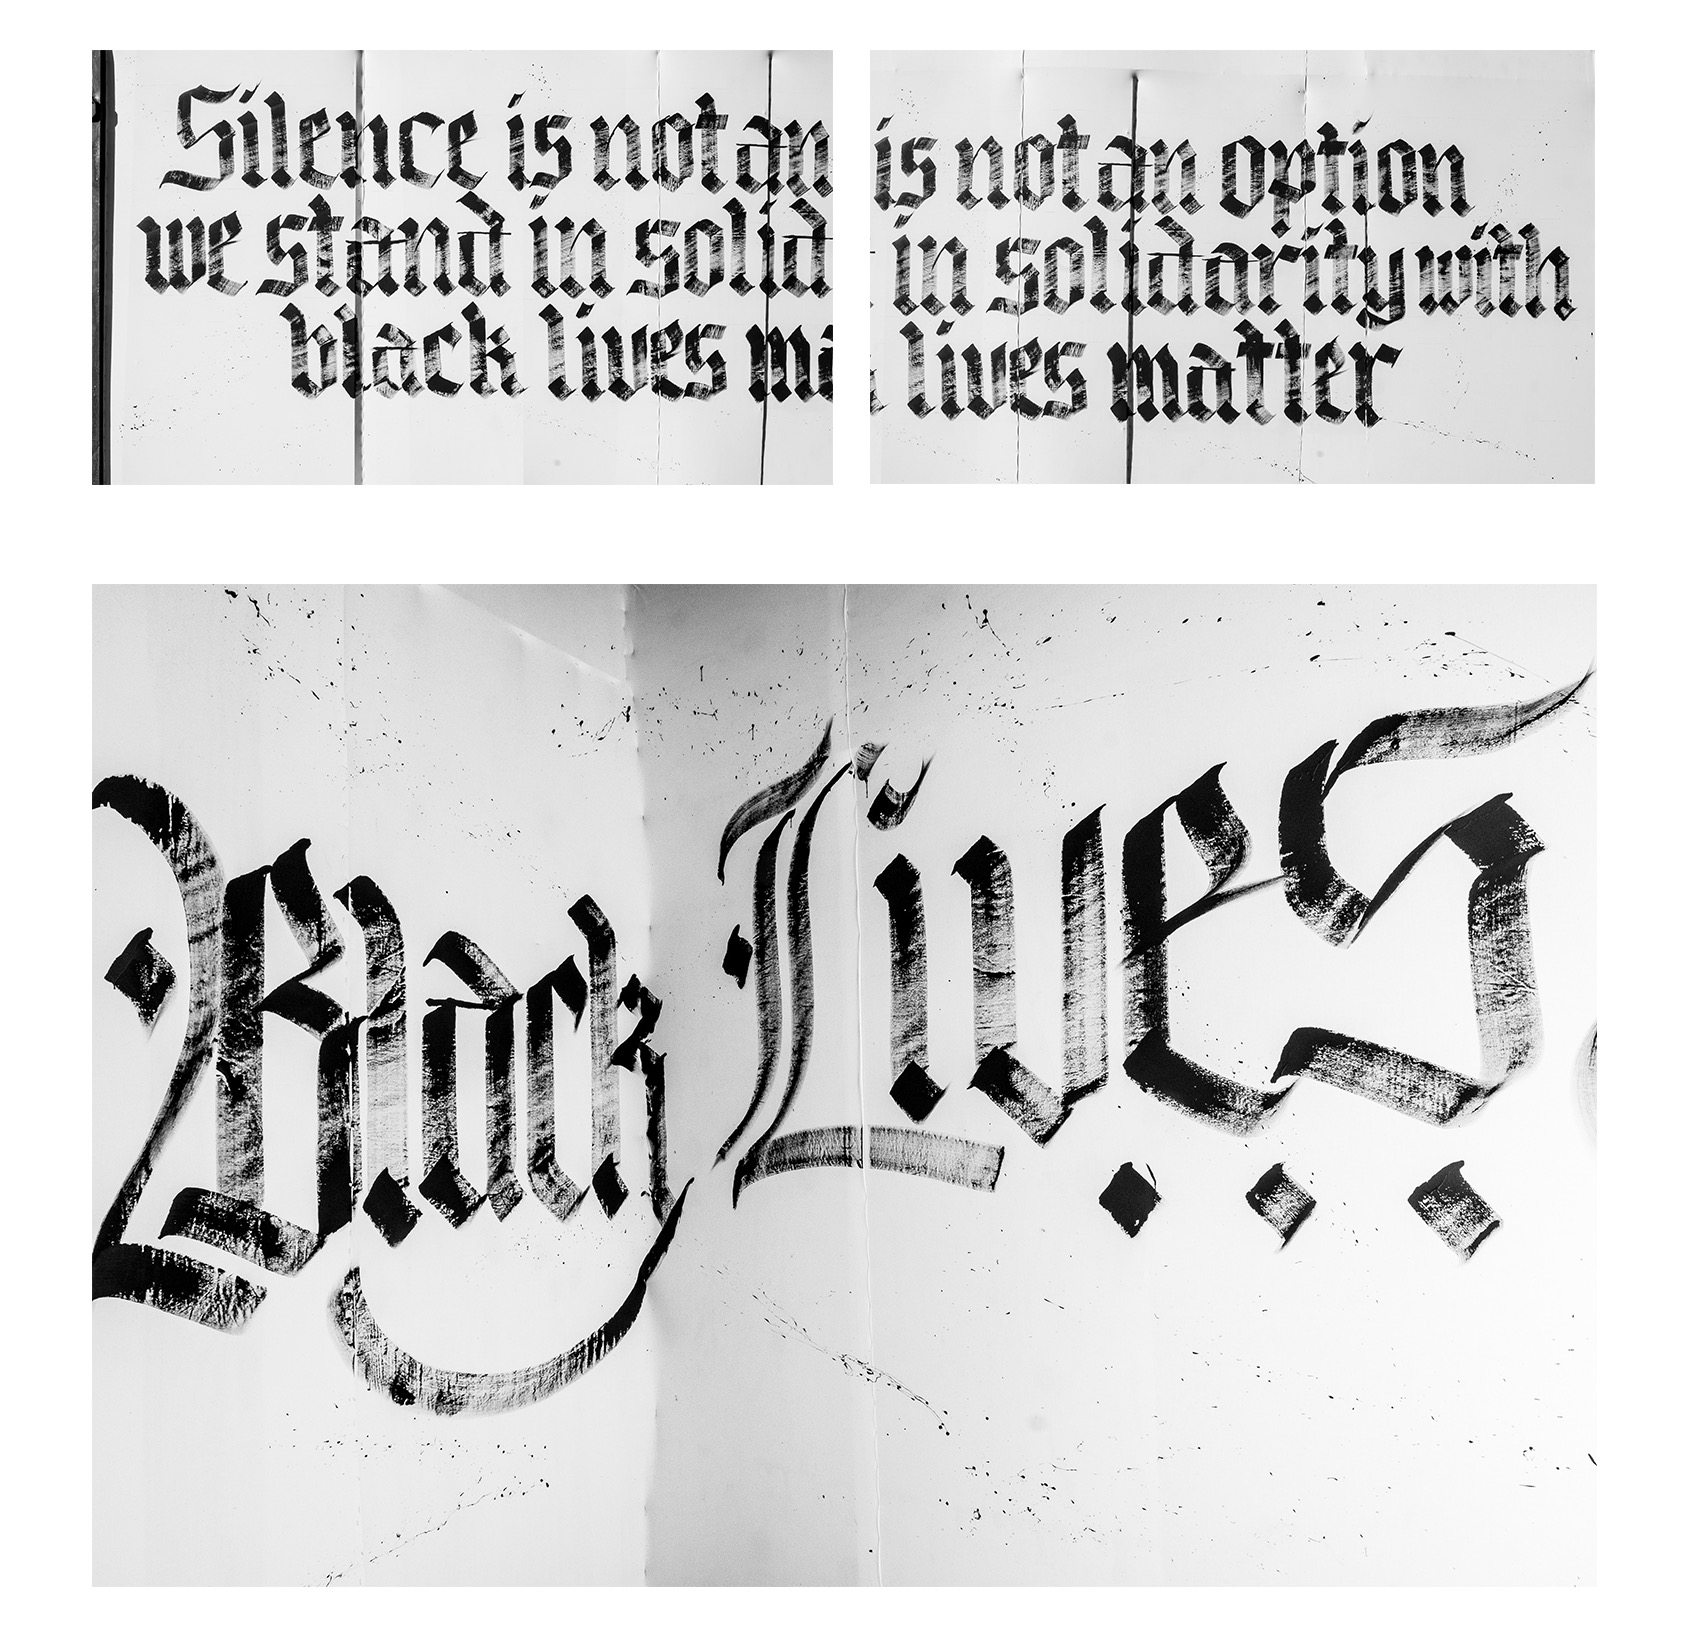 Silence is not an
we stand in solid
black lives ma
is not an option
in solidarity with
lives matter
Black Lives